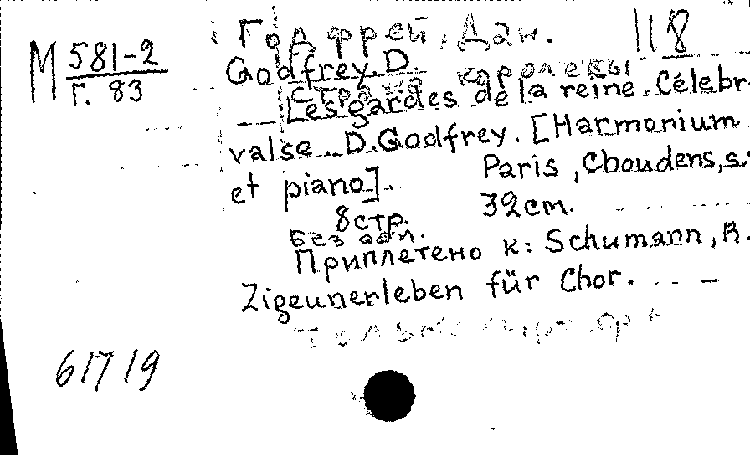 Годфрей, Дан. 118
М 581-2
Г. 83
Godfrey. D.
королевы
Les gardes de la reine. Célebr
valse D. Godfrey. [Harmonium
et piano]. Paris, Choudens, s.
8 стр. 32 cm.
Без обл.
Приплетено к: Schumann, R.
Zigeunerleben für Chor.
61719